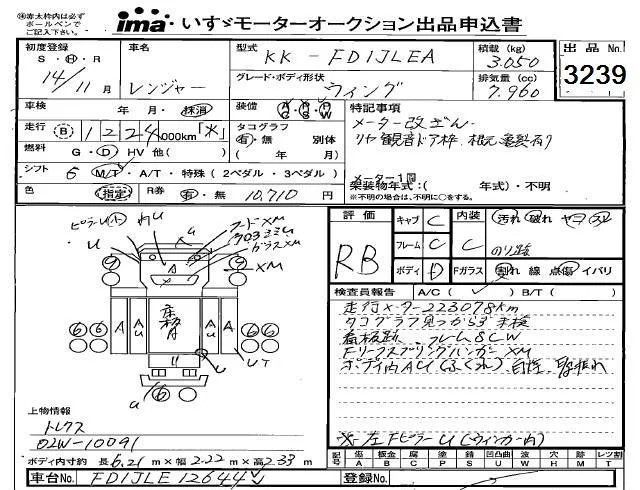 ㊟赤太枠内は必ず
ボールペンで
ご記入下さい。
ima いすゞモーターオークション出品申込書
初度登録
S・H・R
14/11月
車名
レンジャー
型式
KK-FD1JLEA
グレード・ボディ形状
ウィング
積載(kg)
3.050
排気量(cc)
7.960
出品No.
3239
車検 年・月・抹消
装備 A/C P/S P/W
特記事項
メーター改ざん
リヤ観音ドア枠、根元亀裂有り
メーター1回
走行 B 1224,000km「不」
タコグラフ 別体
有・無 (年 月)
燃料 G・D HV 他( )
シフト 6 M/T・A/T・特殊(2ペダル・3ペダル)
架装物年式:( 年式)・不明
※不明の場合は、不明に○をする。
色 指定 R券 有・無 10,710円
評価
RB
キャブ C
フレーム C
ボディ D
内装 C
汚れ 破れ ヤコ スレ
のり跡
Fガラス 割れ 線 点傷 イパリ
検査員報告 A/C( ) B/T( )
走行メーター223078km
タコグラフ見つからず未検
看板跡、フレームSCW
FリーフスプリングハンガーXM
ボディ内AU(ふくれ)
※左FピラーU(ウィンカー内)
ピラーU A
U
XM
床板A
A
AU
UT
上物情報
トレクス
02W-10091
ボディ内寸約 長6.21m×幅2.22m×高2.33m
記号 傷A 板金B 腐C 塗P 錆S 凹凸曲U 波W 穴H 跡M レツ割T
車台No. FD1JLE12644
登録No.